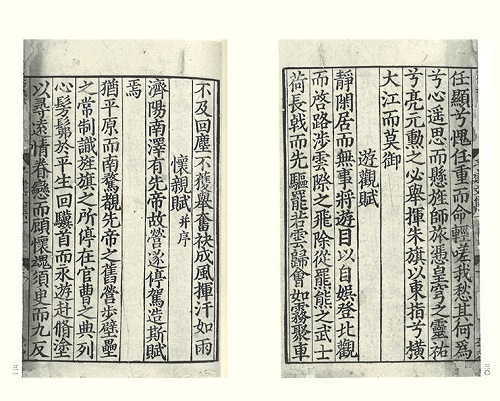 任顯兮愧任重而命輕嗟我愁其何為
兮心遥思而懸旌師旅憑皇穹之靈祐
兮亮元勲之必舉揮朱旗以東指兮橫
大江而莫御
遊觀賦
靜閑居而無事將遊目以自娛登北觀
而啓路涉雲際之飛除從羆熊之武士
荷長戟而先驅罷若雲歸會如霧聚車
三〇
不及回塵不獲舉奮袂成風揮汗如雨
懷親賦 并序
濟陽南澤有先帝故營遂停駕造斯賦
焉
猶平原而南騖覩先帝之舊營步壁壘
之常制識旌旗之所停在官曹之典列
心髣髴於平生回驥首而永遊赴脩塗
以尋遠情眷戀而顧懷魂須臾而九反
三一